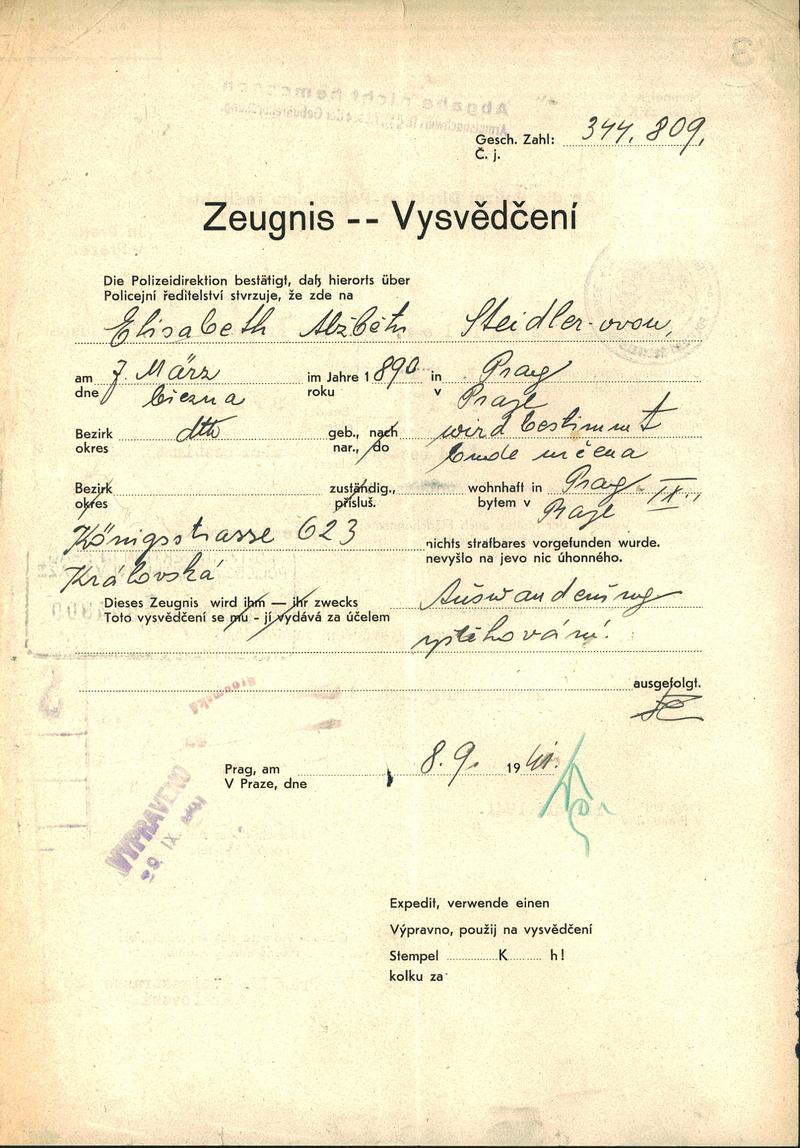 Gesch. Zahl: 344.809.
Č. j.
Zeugnis -- Vysvědčení
Die Polizeidirektion bestätigt, daß hierorts über
Policejní ředitelství stvrzuje, že zde na
Elisabeth Alžběta Steidler-ovou,
am 7 März im Jahre 1890 in Prag
dne března roku v Praze
Bezirk dtto geb., nach wird bestimmt
okres nar., do bude určena
Bezirk zuständig., wohnhaft in Prag IX.,
okres přísluš. bytem v Praze
Königsstrasse 623 nichts strafbares vorgefunden wurde.
Královská nevyšlo na jevo nic úhonného.
Dieses Zeugnis wird ihm — ihr zwecks Auswanderung
Toto vysvědčení se mu - jí vydává za účelem vystěhování.
ausgefolgt.
Prag, am 8. 9. 1941.
V Praze, dne
VYPRAVENO
9. IX. 1941
Expedit, verwende einen
Výpravno, použij na vysvědčení
Stempel K h!
kolku za